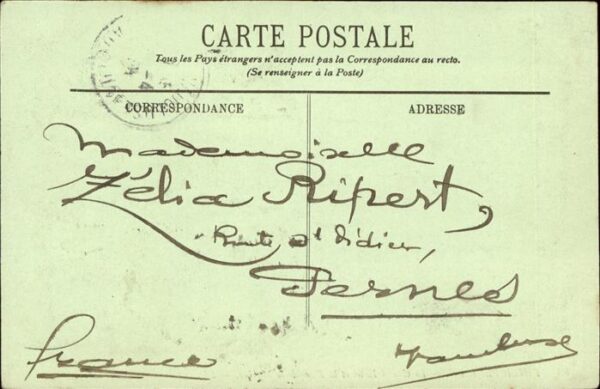 CARTE POSTALE
Tous les Pays étrangers n'acceptent pas la Correspondance au recto.
(Se renseigner à la Poste)
CORRESPONDANCE
ADRESSE
Mademoiselle
Zélia Ripert,
Route St Didier,
Pernes
France
Vaucluse